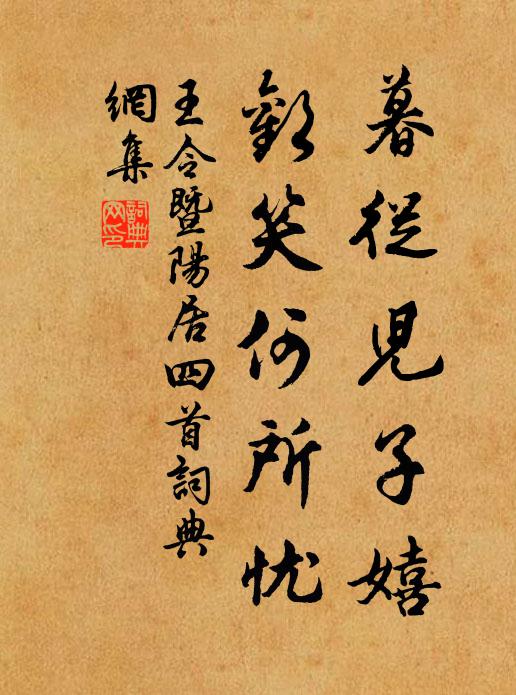 暮從児子嬉
歡笑何所忧
王令暨陽居四首詞典
網集
詞典網印